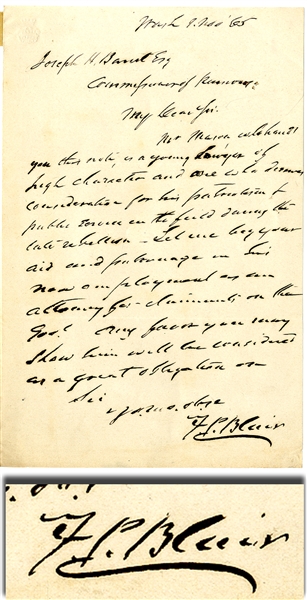 Wash 9. Nov '65
Joseph H. Barrett Esq
Commissioner of Pensions
My Dear Sir.
Mr Mason who hands
you this note, is a young lawyer of
high character and one who deserves
consideration for his patriotism &
public service in the field during the
late rebellion - Let me beg your
aid and patronage in his
now employment as an
attorney for claimants on the
Govt. Any favor you may
show him will be considered
as a great obligation on
Sir
F. P. Blair
F. P. Blair